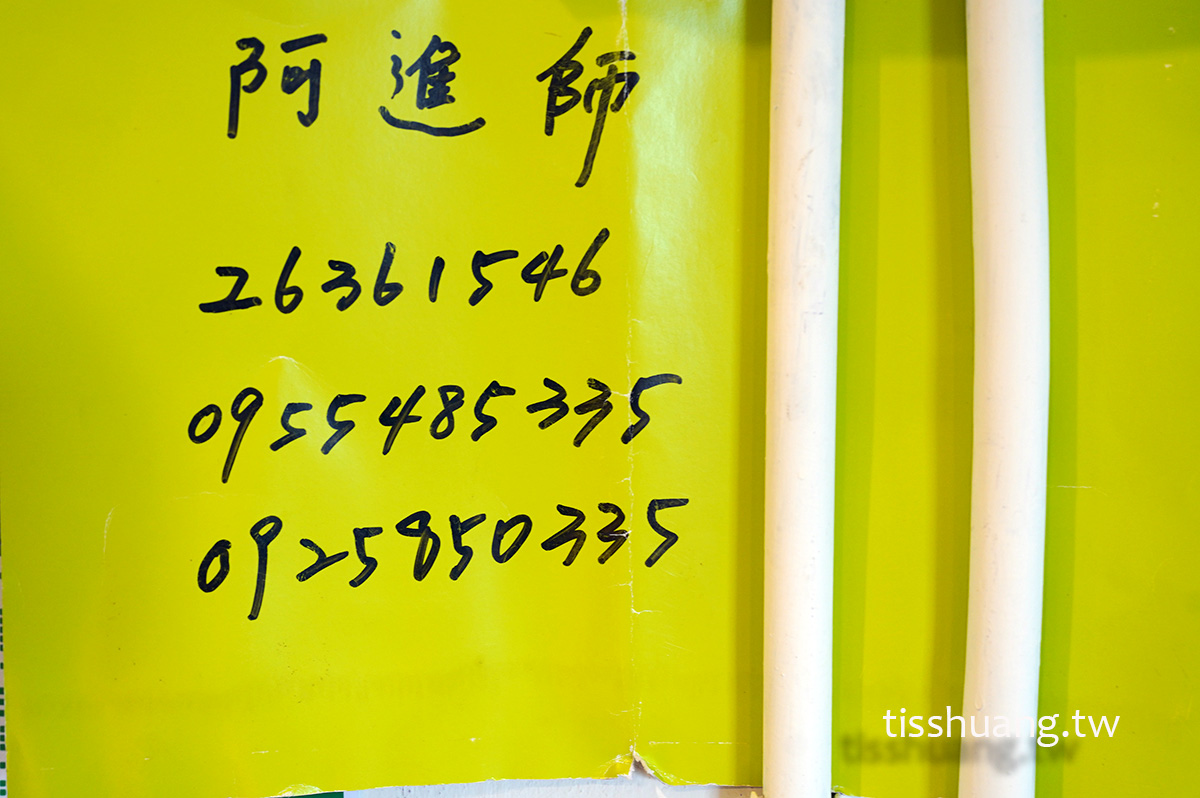 阿進師
26361546
0955485335
0925850335
tisshuang.tw